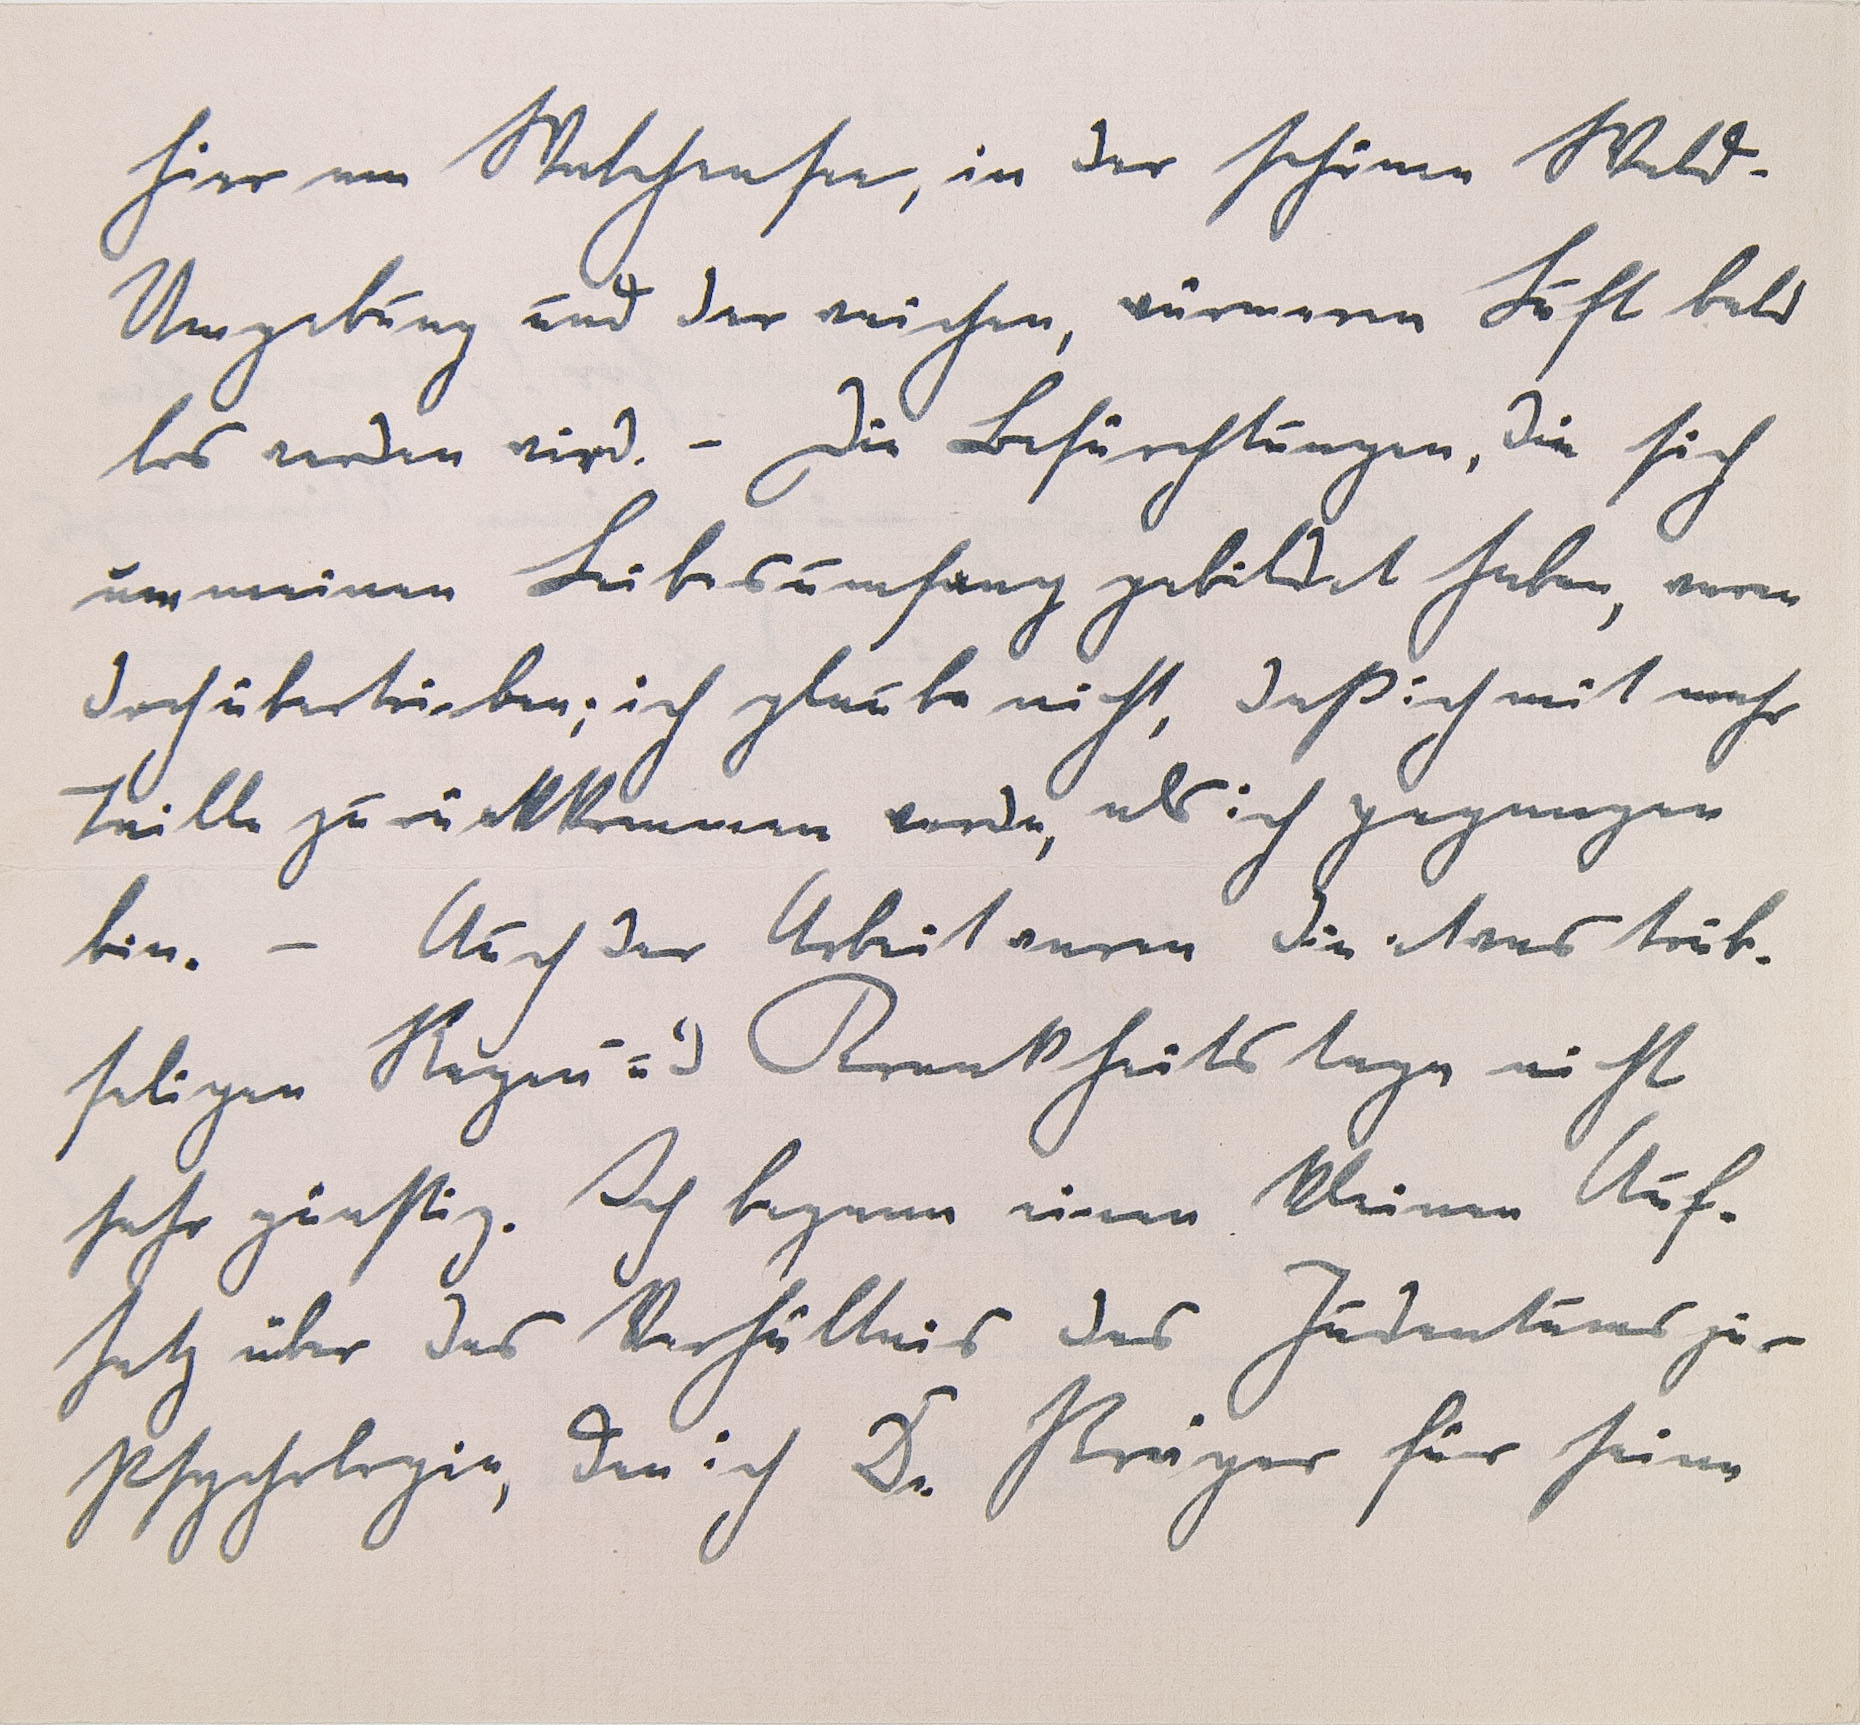 hier am Walchensee, in der schönen Wald-
Umgebung und der weichen, wärmeren Luft bald
los werden wird. – Die Befürchtungen, die sich
um meinen Leibesumfang gebildet haben, waren
doch übertrieben; ich glaube nicht, daß ich mit mehr
Taille zurückkommen werde, als ich gegangen
bin. – Auch der Arbeit waren die etwas trüb-
seligen Regen- und Krankheitstage nicht
sehr günstig. Ich begann einen kleinen Auf-
satz über das Verhältnis des Judentums zur
Psychologie, den ich Dr. Krüger für seine